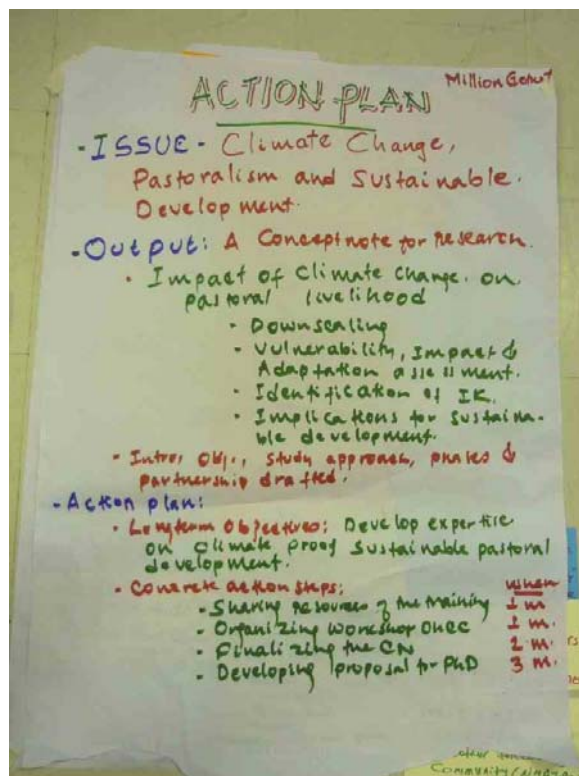 Million
ACTION PLAN
- ISSUE - Climate Change,
Pastoralism and Sustainable.
Development.
- Output: A Conceptnote for Research.
• Impact of Climate Change. on.
pastoral livelihood
- Downscaling
- Vulnerability, Impact &
Adaptation assessment.
- Identification of IK.
- Implications for Sustaina-
ble development.
- Intro, Obj., Study approach, phases &
partnership drafted.
- Action plan:
- Longterm Objectives: Develop expertise
on Climate proof Sustainable pastoral
development.
- Concrete action steps: When
- Sharing resources of the training 1 m
- Organizing workshop on CC 1 m.
- Finalizing the CN 2 m.
- Developing proposal for PhD 3 m.
other
Community